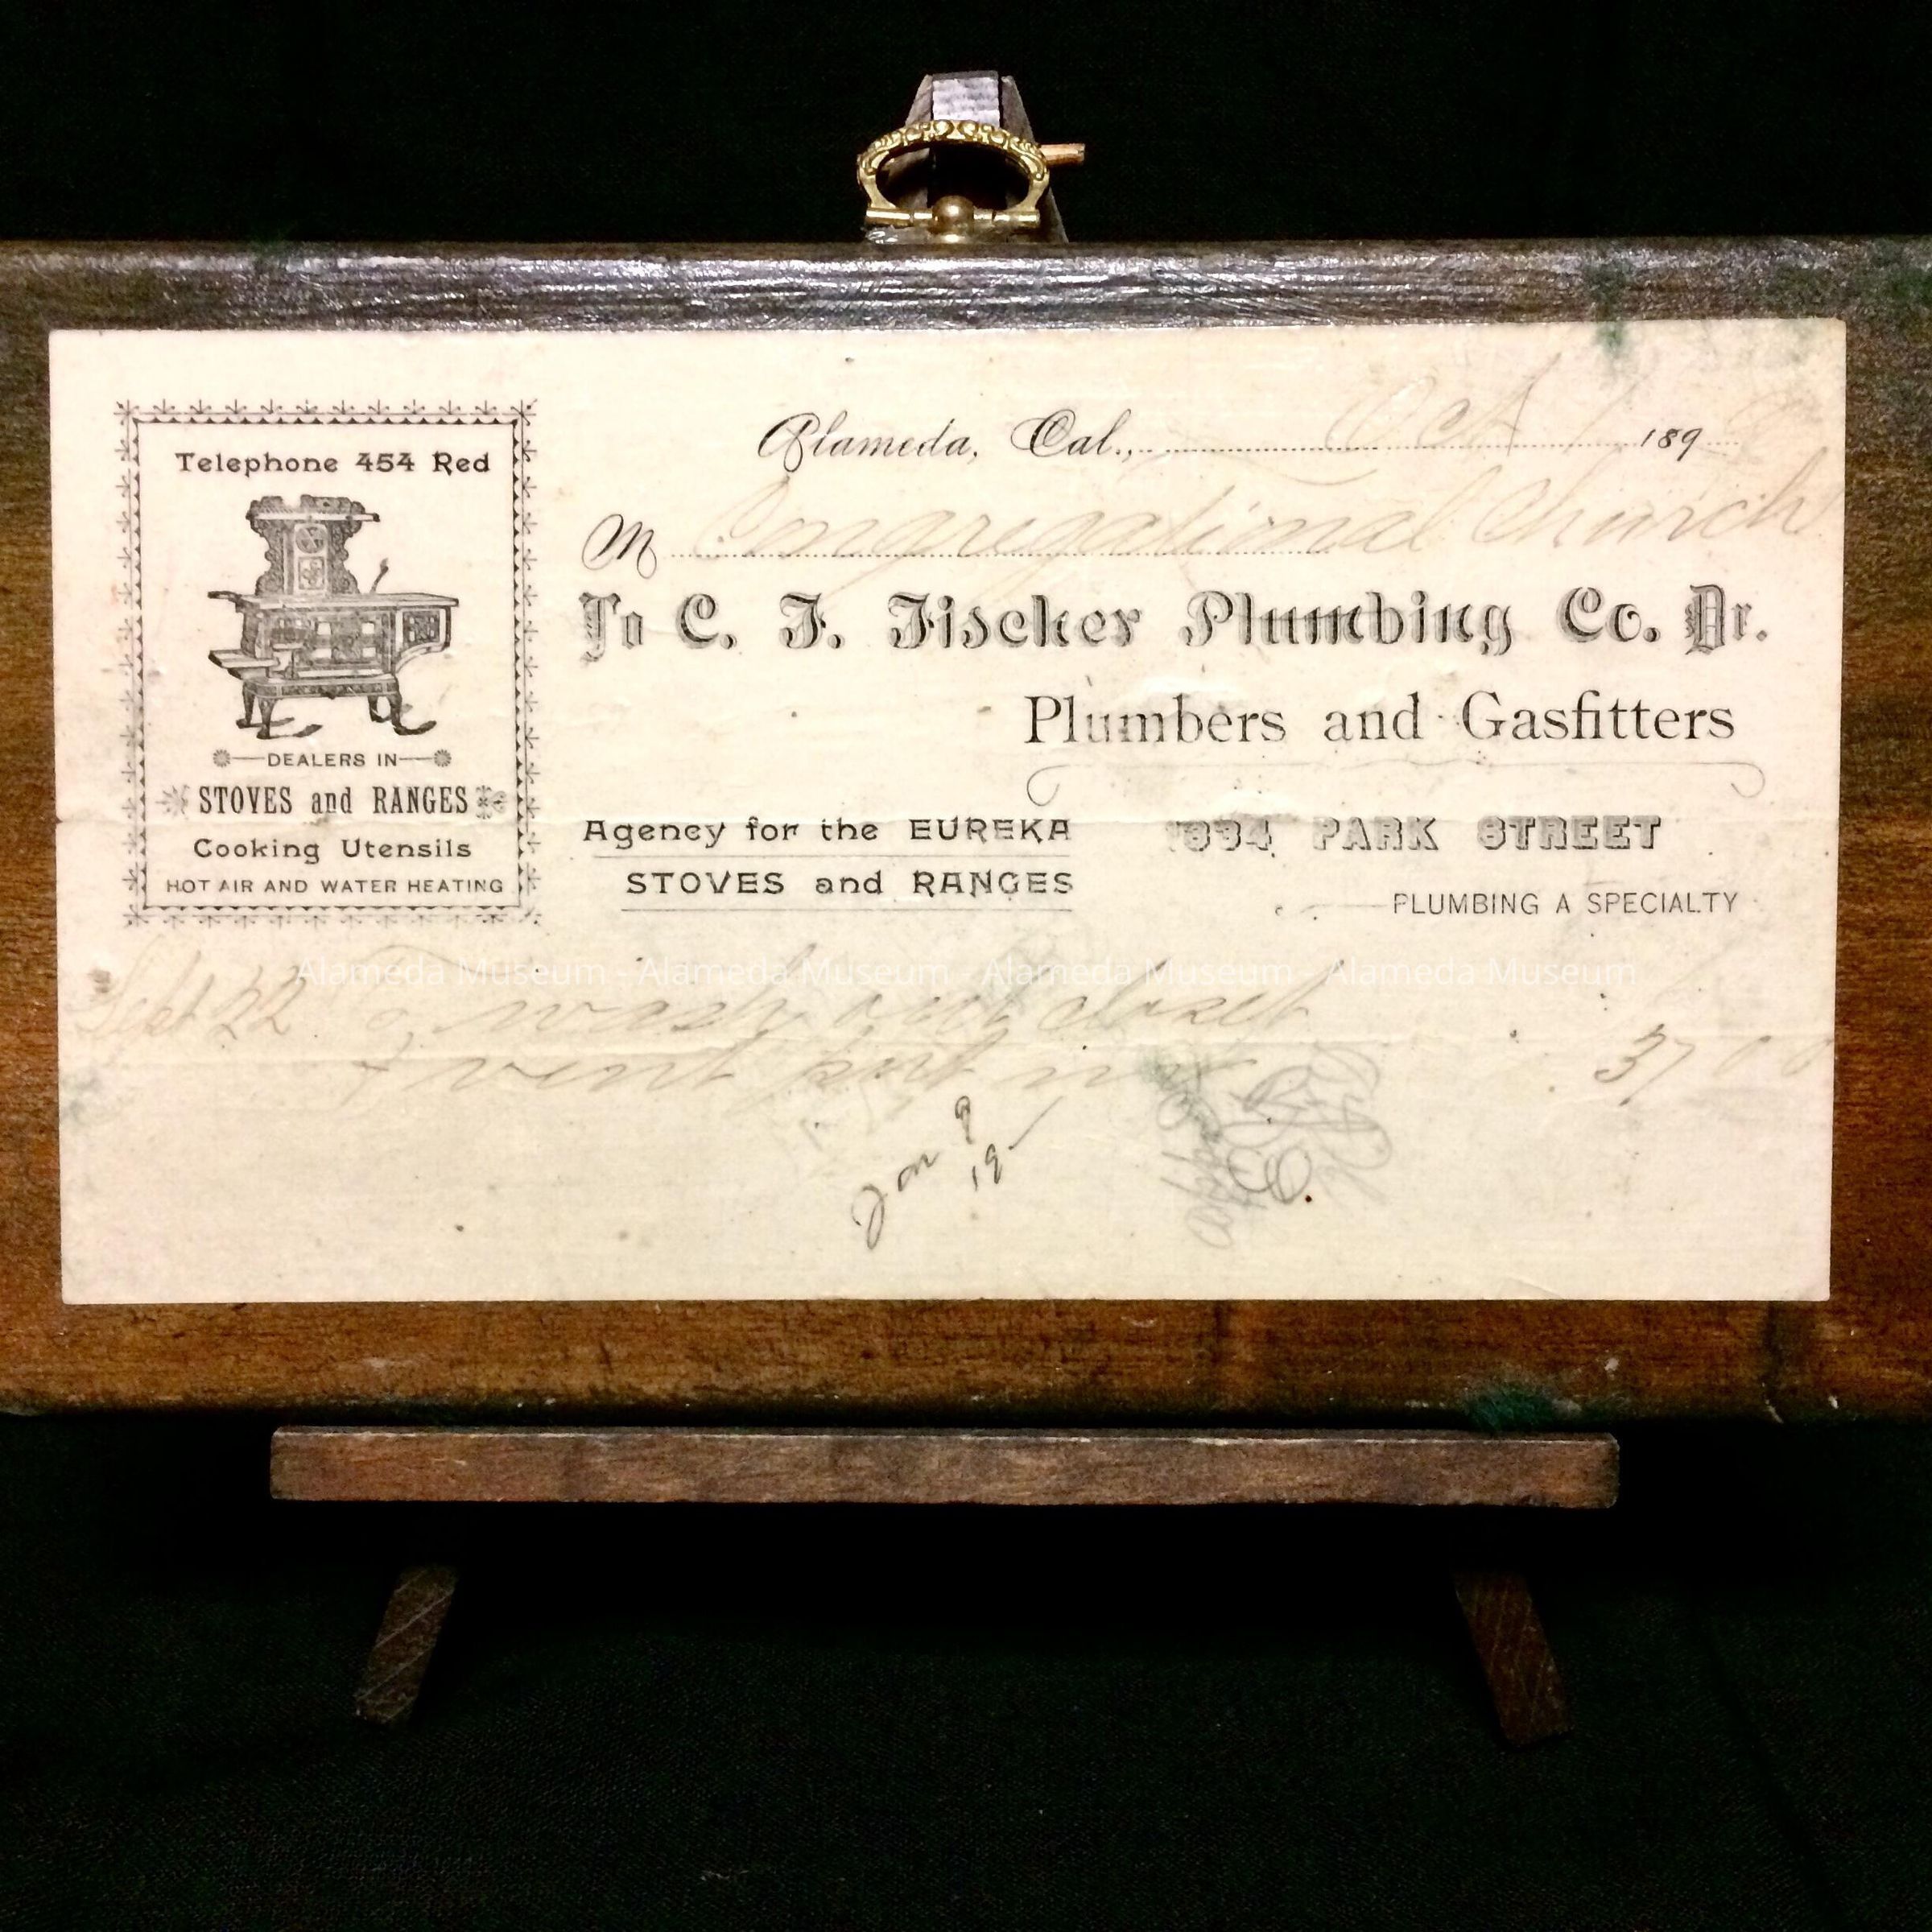 Telephone 454 Red
DEALERS IN
STOVES and RANGES
Cooking Utensils
HOT AIR AND WATER HEATING
Alameda, Cal., Oct 1 189
M Congregational Church
To C. F. Fischer Plumbing Co. Dr.
Plumbers and Gasfitters
Agency for the EUREKA
STOVES and RANGES
PARK STREET
PLUMBING A SPECIALTY
Alameda Museum - Alameda Museum - Alameda Museum - Alameda Museum
Sept 22 To wash out closet
vent put in 37 00
Jan 9
19-